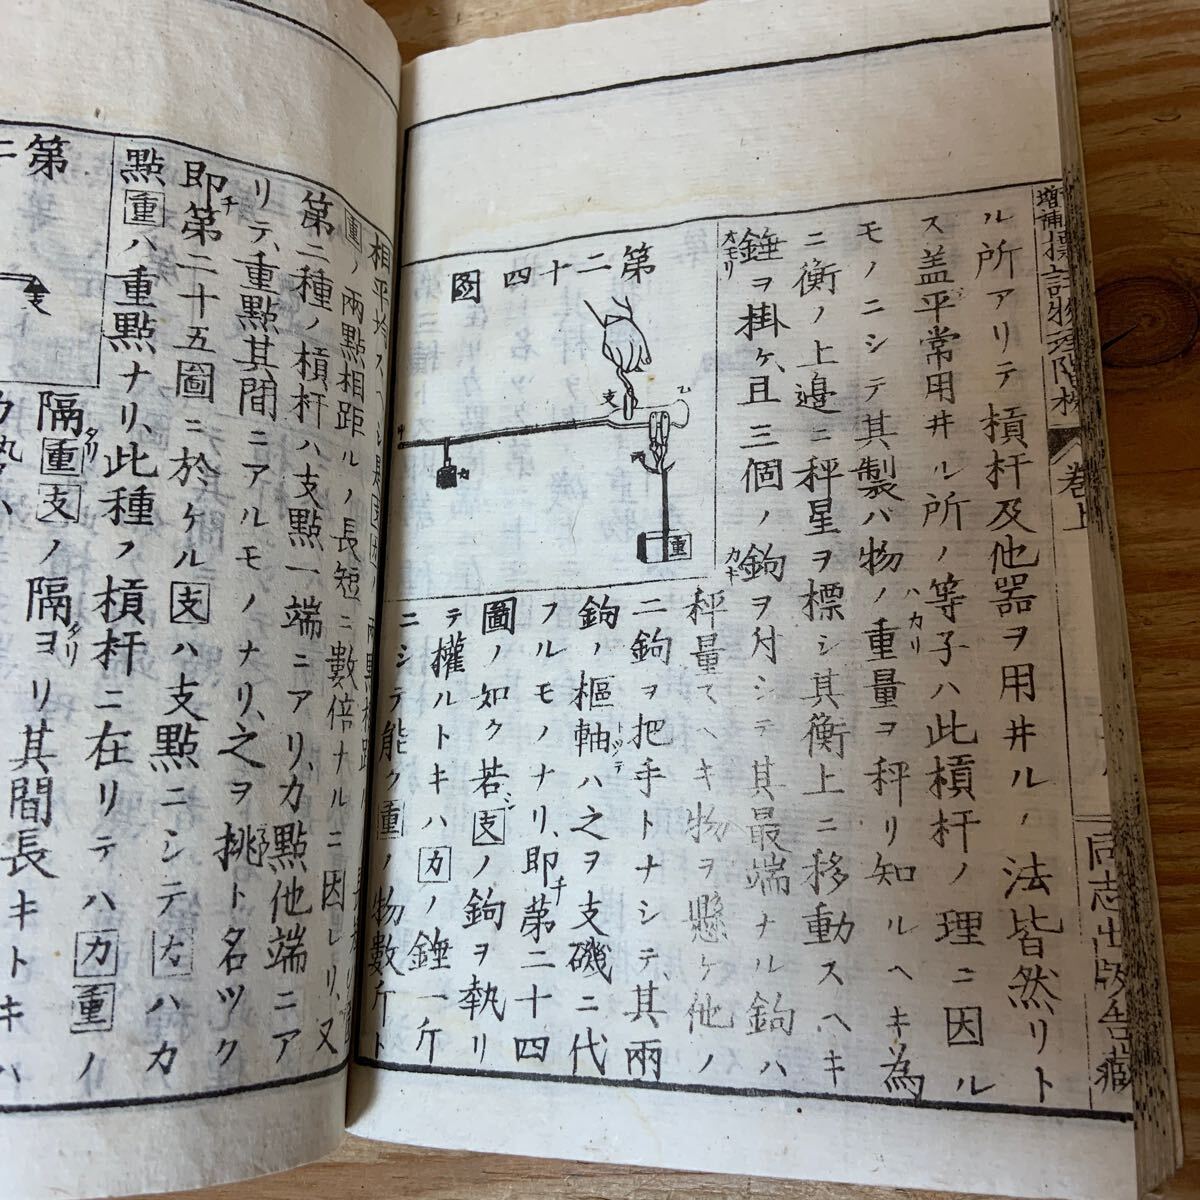 ル所アリテ槓杆及他器ヲ用井ルノ法皆然リト
ス盖平常用井ル所ノ等子ハ此槓杆ノ理ニ因ル
モノニシテ其製バ物ノ重量ヲ秤リ知ルヘキ為
ハカリ
ニ衡ノ上邊ニ秤星ヲ標シ其衡上ニ移動スヘキ
錘ヲ掛ケ且三個ノ鉤ヲ付シテ其最端ナル鉤ハ
オモリ
カギ
秤量スヘキ物ヲ懸ケ他ノ
二鉤ヲ把手トナシテ其兩
鉤ノ樞軸ハ之ヲ支磯ニ代
フルモノナリ即チ第二十四
圖ノ如ク若シ支ノ鉤ヲ執リ
テ權ルトキハ力ノ錘一斤
ニシテ能ク重ノ物數斤ト
第二十四圖
支
力
重
巻上
同志出版舎蔵
重ノ兩點相距ルノ長短ニ數倍ナルニ因レリ又
第二種ノ槓杆ハ支點一端ニアリ力點他端ニア
リテ重點其間ニアルモノナリ之ヲ挑ト名ツク
即チ第二十五圖ニ於ケル支ハ支點ニシテ力ハ力
點重ハ重點ナリ此種ノ槓杆ニ在リテハ力重ノ
隔タリ重支ノ隔タリヨリ其間長キトキハ
第
二